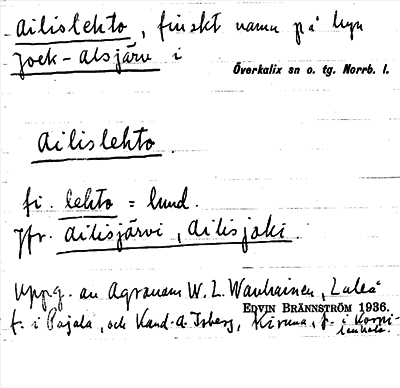 Ailislehto, finskt namn på byn
Joek-Alsjärv i
Överkalix sn o. tg. Norrb. l.
Ailislehto.
fi. lehto = lund.
Jfr. Ailisjärvi, Ailisjoki.
Uppg. av Agronom W. L. Wanhainen, Luleå
EDVIN BRÄNNSTRÖM 1936.
f. i Pajala, och Kand. A. Isberg, Kiruna, f. i Korpi-
lombolo.